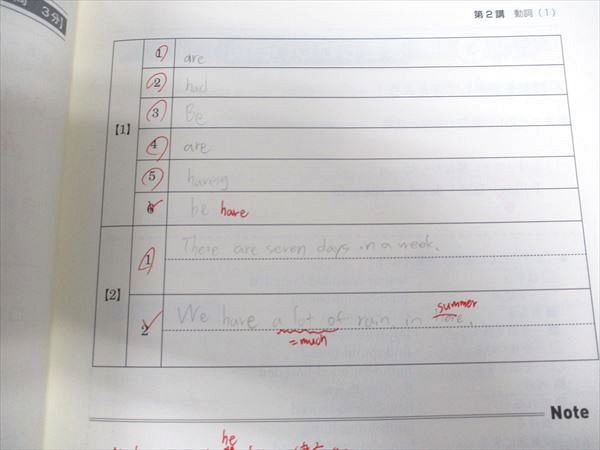 3分】
第2講 動詞(1)
【1】
1 are
2 had
3 Be
4 are
5 having
6 be have
【2】
1 There are seven days in a week.
summer
2 We have a lot of rain in
= much
Note
he